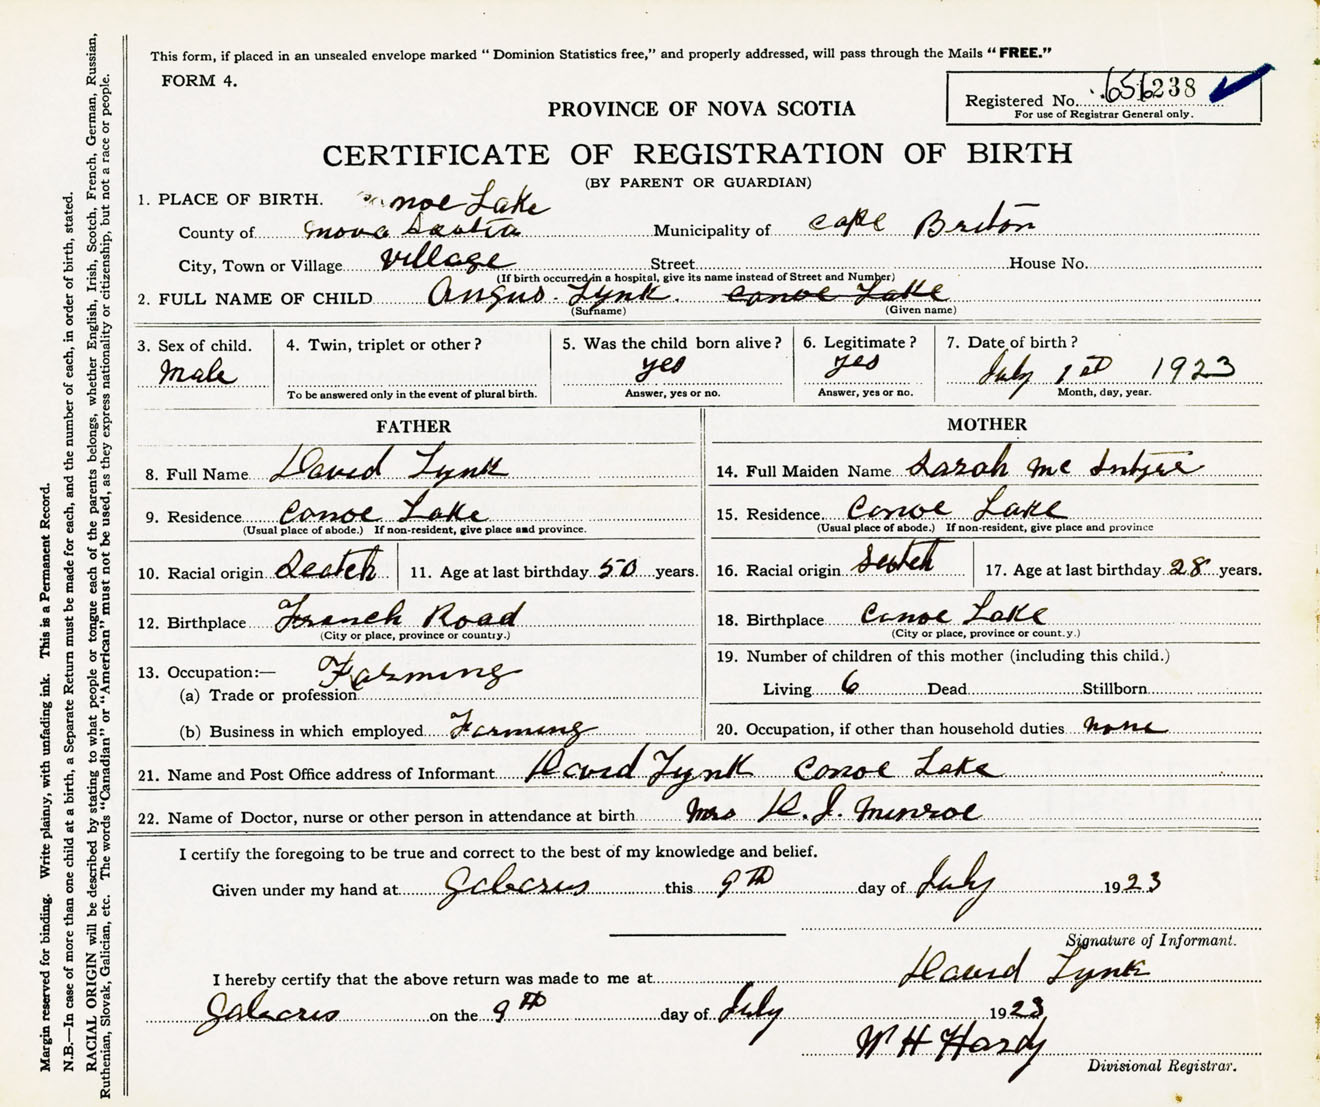 This form, if placed in an unsealed envelope marked "Dominion Statistics free," and properly addressed, will pass through the Mails "FREE."
FORM 4.
Registered No. 656238
For use of Registrar General only.
PROVINCE OF NOVA SCOTIA
CERTIFICATE OF REGISTRATION OF BIRTH
(BY PARENT OR GUARDIAN)
1. PLACE OF BIRTH. Canoe Lake
County of Nova Scotia Municipality of Cape Briton
City, Town or Village village Street House No.
(If birth occurred in a hospital, give its name instead of Street and Number)
2. FULL NAME OF CHILD Angus Lynk. Canoe Lake
(Surname) (Given name)
3. Sex of child. 4. Twin, triplet or other? 5. Was the child born alive? 6. Legitimate? 7. Date of birth?
Male yes yes July 1st 1923
To be answered only in the event of plural birth. Answer, yes or no. Answer, yes or no. Month, day, year.
FATHER MOTHER
8. Full Name David Lynk 14. Full Maiden Name Sarah Mc
9. Residence Canoe Lake 15. Residence Canoe Lake
(Usual place of abode.) If non-resident, give place and province. (Usual place of abode.) If non-resident, give place and province
10. Racial origin Scotch 11. Age at last birthday 50 years. 16. Racial origin Scotch 17. Age at last birthday 28 years.
12. Birthplace French Road 18. Birthplace Canoe Lake
(City or place, province or country.) (City or place, province or country.)
13. Occupation:— Farming 19. Number of children of this mother (including this child.)
(a) Trade or profession Living 6 Dead Stillborn
(b) Business in which employed Farming 20. Occupation, if other than household duties none
21. Name and Post Office address of Informant David Lynk Canoe Lake
22. Name of Doctor, nurse or other person in attendance at birth Mrs D. J. Munroe
I certify the foregoing to be true and correct to the best of my knowledge and belief.
Given under my hand at Gabarus this 9th day of July 1923
Signature of Informant.
David Lynk
I hereby certify that the above return was made to me at
Gabarus on the 9th day of July 1923
W H Hardy
Divisional Registrar.
Margin reserved for binding. Write plainly, with unfading ink. This is a Permanent Record.
N.B.—In case of more than one child at a birth, a Separate Return must be made for each, and the number of each, in order of birth, stated.
RACIAL ORIGIN will be described by stating to what people or tongue each of the parents belongs, whether English, Irish, Scotch, French, German, Russian,
Ruthenian, Slovak, Galician, etc. The words "Canadian" or "American" must not be used, as they express nationality or citizenship, but not a race or people.